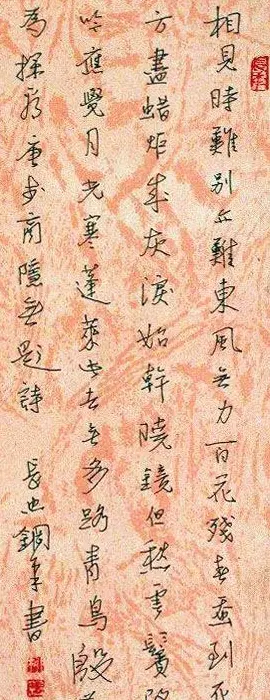 相見時難別亦難東風無力百花殘春蠶到死
方盡蜡炬成灰淚始幹曉鏡但愁雲鬢
吟應覺月光寒蓬萊此去無多路青鳥殷
為探看 唐李商隱無題詩 書